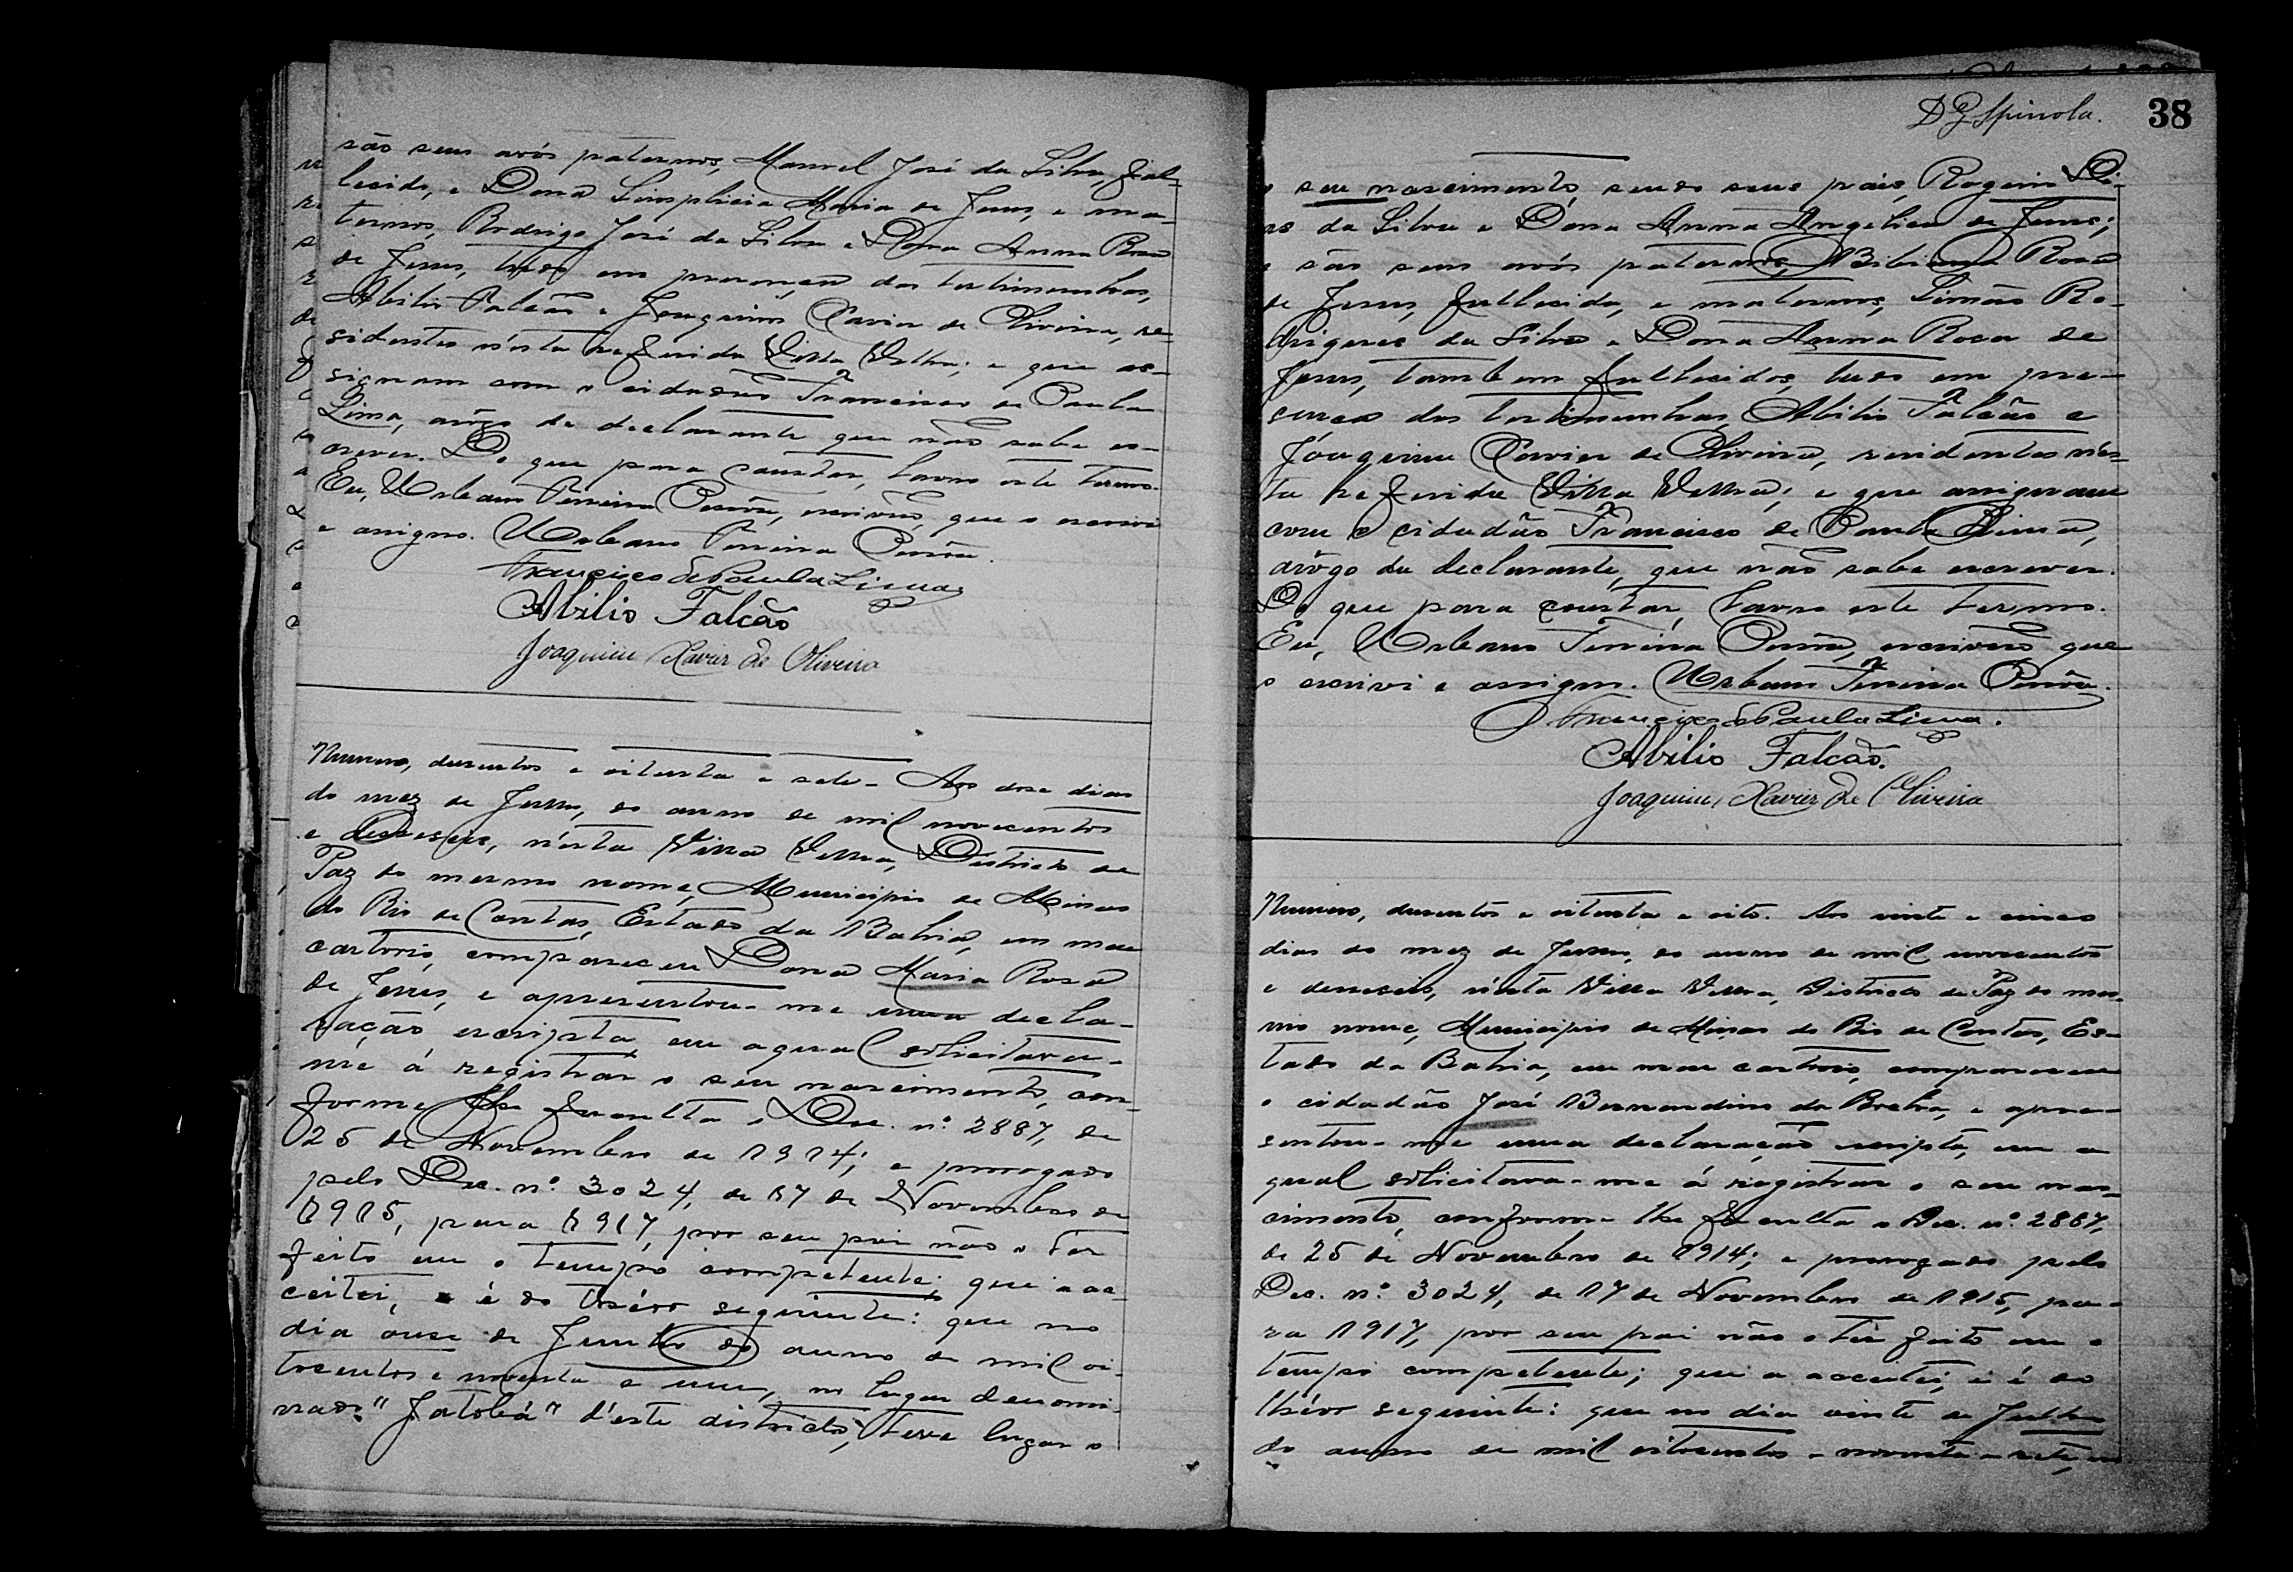 são seus avós paternos, Manoel José da Silva, fal-
lecido, e Dona Simplicia Maria de Jesus, e ma-
ternos, Rodrigo José da Silva e Dona Anna Rosa
de Jesus, tudo em presença das testimunhas,
Abilio Falcão e Joaquim Xavier de Oliveira, re-
sidentes n'esta referida Villa Velha; e que as-
signam com o cidadão Francisco de Paula
Lima, arôgo da declarante que não sabe es-
crever. Do que para constar, lavro este termo.
Eu, Urbano Pereira, escrivão, que o escrevi
e assigno. Urbano
Francisco de Paula Lima
Abilio Falcão
Joaquim Xavier de Oliveira
Numero, dusentos e oitenta e sete. Aos dose dias
do mez de Julho, do anno de mil novecentos
e deseseis, n'esta Villa Velha, Districto de
Paz do mesmo nome, Municipio de Minas
do Rio de Contas, Estado da Bahia, em meu
cartorio, compareceu Dona Maria Rosa
de Jesus, e apresentou-me uma decla-
ração escripta em a qual solicitava-
me á registrar o seu nascimento, con-
forme lhe faculta o Dec. nº 2887, de
25 de Novembro de 1914; e prorogado
pelo Dec. nº 3024, de 17 de Novembro de
1915, para 1917, por seu pai não o ter
feito em o tempo competente; que a ac-
ceitei, e é do théor seguinte: que no
dia onze de Junho do anno de mil oi-
tocentos e noventa e um, no lugar denomi-
nado "Jatobá" d'este districto, teve lugar o
D G Spinola. 38
o seu nascimento, sendo seus pais, Rogerio
da Silva e Dona Anna Angelica de Jesus;
e são seus avós paternos, Bibiana Rosa
de Jesus, fallecida, e maternos, Simão Ro-
drigues da Silva e Dona Anna Rosa de
Jesus, tambem fallecidos, tudo em pre-
sença das testimunhas, Abilio Falcão e
Joaquim Xavier de Oliveira, residentes n'es-
ta referida Villa Velha; e que assignam
com o cidadão Francisco de Paula Lima,
arôgo da declarante, que não sabe escrever.
Do que para constar, lavro este termo.
Eu, Urbano, escrivão que
o escrivi e assigno. Urbano
Francisco de Paula Lima.
Abilio Falcão.
Joaquim Xavier de Oliveira
Numero, dusentos e oitenta e oito. Aos vinte e cinco
dias do mez de Julho, do anno de mil novecentos
e deseseis, n'esta Villa Velha, Districto de Paz do mes-
mo nome, Municipio de Minas do Rio de Contas, Es-
tado da Bahia, em meu cartorio, compareceu
o cidadão José Bernardino da Rocha, e apre-
sentou-me uma declaração escripta, em a
qual solicitava-me á registrar o seu nas-
cimento, conforme lhe faculta o Dec. nº 2887,
de 25 de Novembro de 1914; e prorogado pelo
Dec. nº 3024, de 17 de Novembro de 1915, pa-
ra 1917, por seu pai não o ter feito em o
tempo competente; que a acceitei, e é do
théor seguinte: que no dia vinte de Julho
do anno de mil oitocentos e noventa e sete,